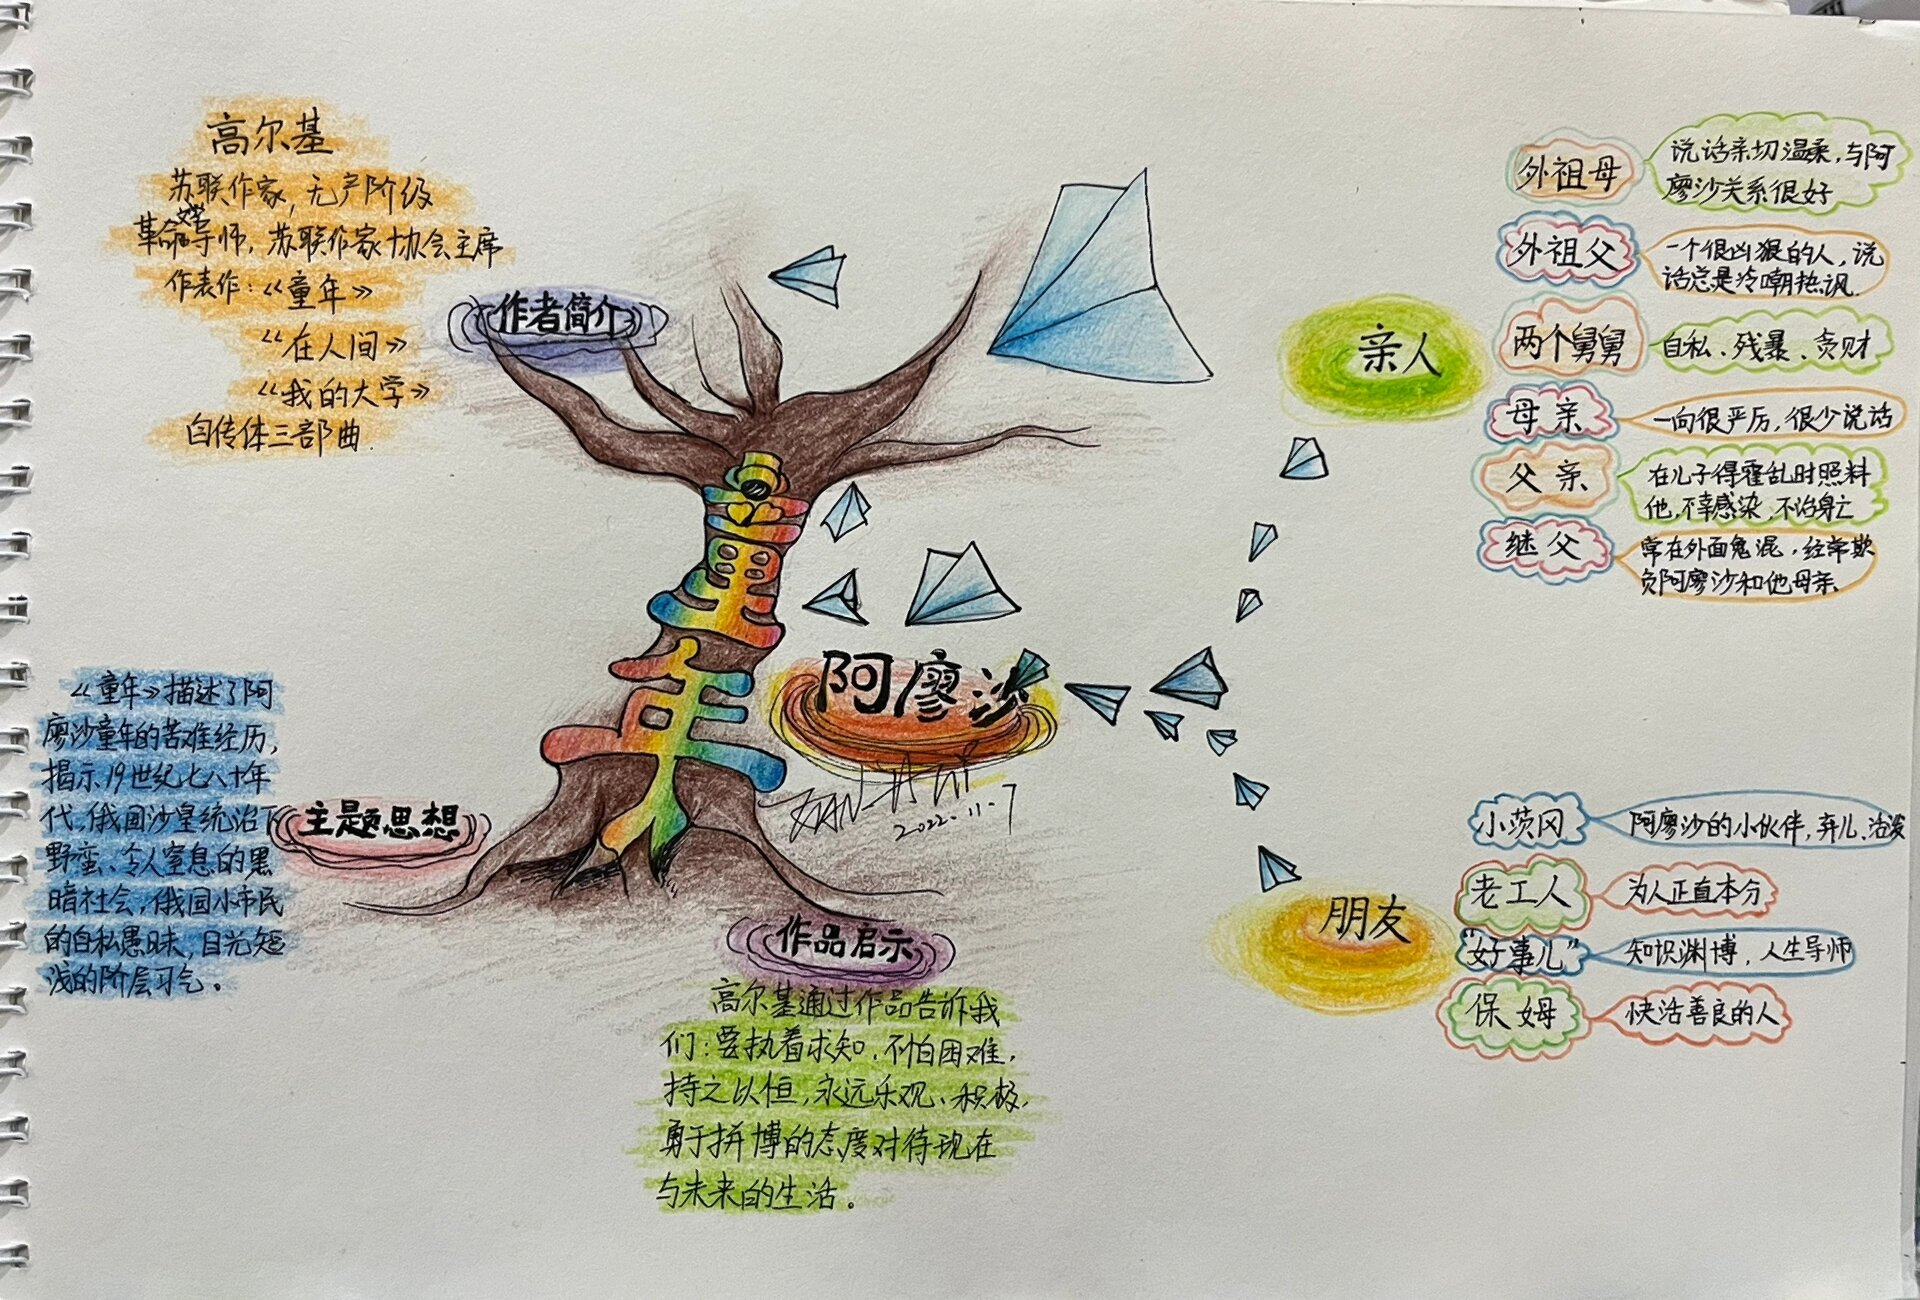 高尔基
苏联作家，无产阶级
革命文学导师，苏联作家协会主席
作表作：《童年》
《在人间》
《我的大学》
自传体三部曲.
作者简介
童年
阿廖沙
2022.11.7
《童年》描述了阿
廖沙童年的苦难经历，
揭示19世纪七八十年
代，俄国沙皇统治下
野蛮、令人窒息的黑
暗社会，俄国小市民
的自私愚昧，目光短
浅的阶层习气。
主题思想
作品启示
高尔基通过作品告诉我
们：要执着求知，不怕困难，
持之以恒，永远乐观、积极，
勇于拼搏的态度对待现在
与未来的生活。
亲人
外祖母
说话亲切温柔，与阿
廖沙关系很好
外祖父
一个很凶狠的人，说
话总是冷嘲热讽.
两个舅舅
自私、残暴、贪财
母亲
一向很严厉，很少说话
父亲
在儿子得霍乱时照料
他，不幸感染，不治身亡
继父
常在外面鬼混，经常欺
负阿廖沙和他母亲
朋友
小茨冈
阿廖沙的小伙伴，弃儿、活泼
老工人
为人正直本分
“好事儿”
知识渊博，人生导师
保姆
快活善良的人